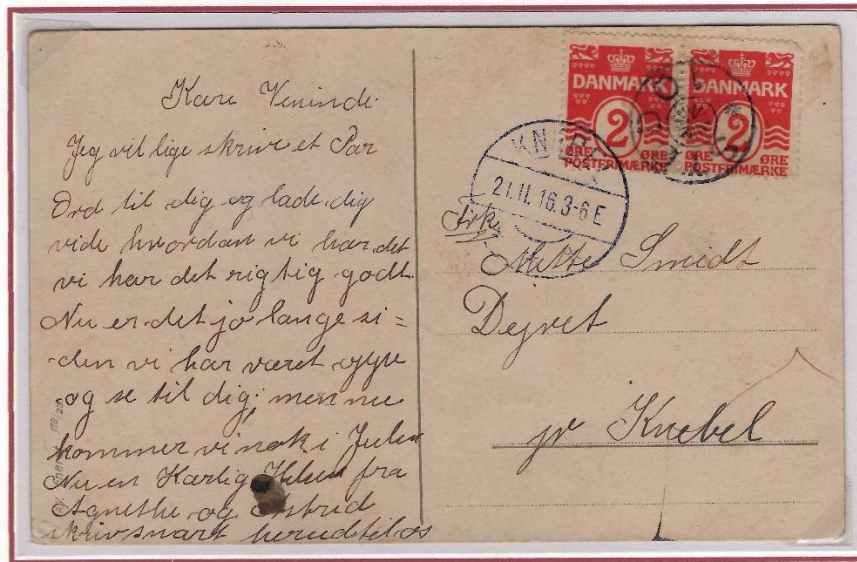 Kære Veninde.
Jeg vil lige skrive et Par
Ord til dig og lade dig
vide hvordan vi har det
vi har det rigtig godt.
Nu er det jo lange si=
den vi har været oppe
og se til dig; men nu
kommer vi nok i Julen
Nu en Kærlig Hilsen fra
Agnethe og Astrid
skriv snart herned til os
DANMARK
2
ØRE ØRE
POSTFRIMÆRKE
DANMARK
2
ØRE ØRE
POSTFRIMÆRKE
KNEBEL
21.11.16.3-6 E
Frk.
Mette Smidt
Dejret
pr Knebel